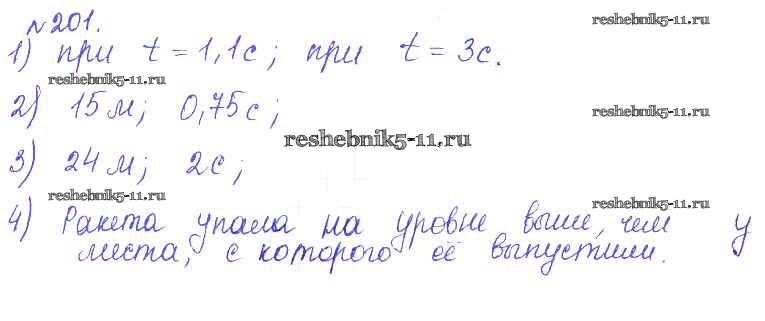 №201.
reshebnik5-11.ru
1) при t = 1,1с; при t = 3с.
reshebnik5-11.ru
2) 15м; 0,75с;
reshebnik5-11.ru
reshebnik5-11.ru
3) 24м; 2с;
reshebnik5-11.ru
reshebnik5-11.ru
4) Ракета упала на уровне выше, чем у
места, с которого её выпустили.